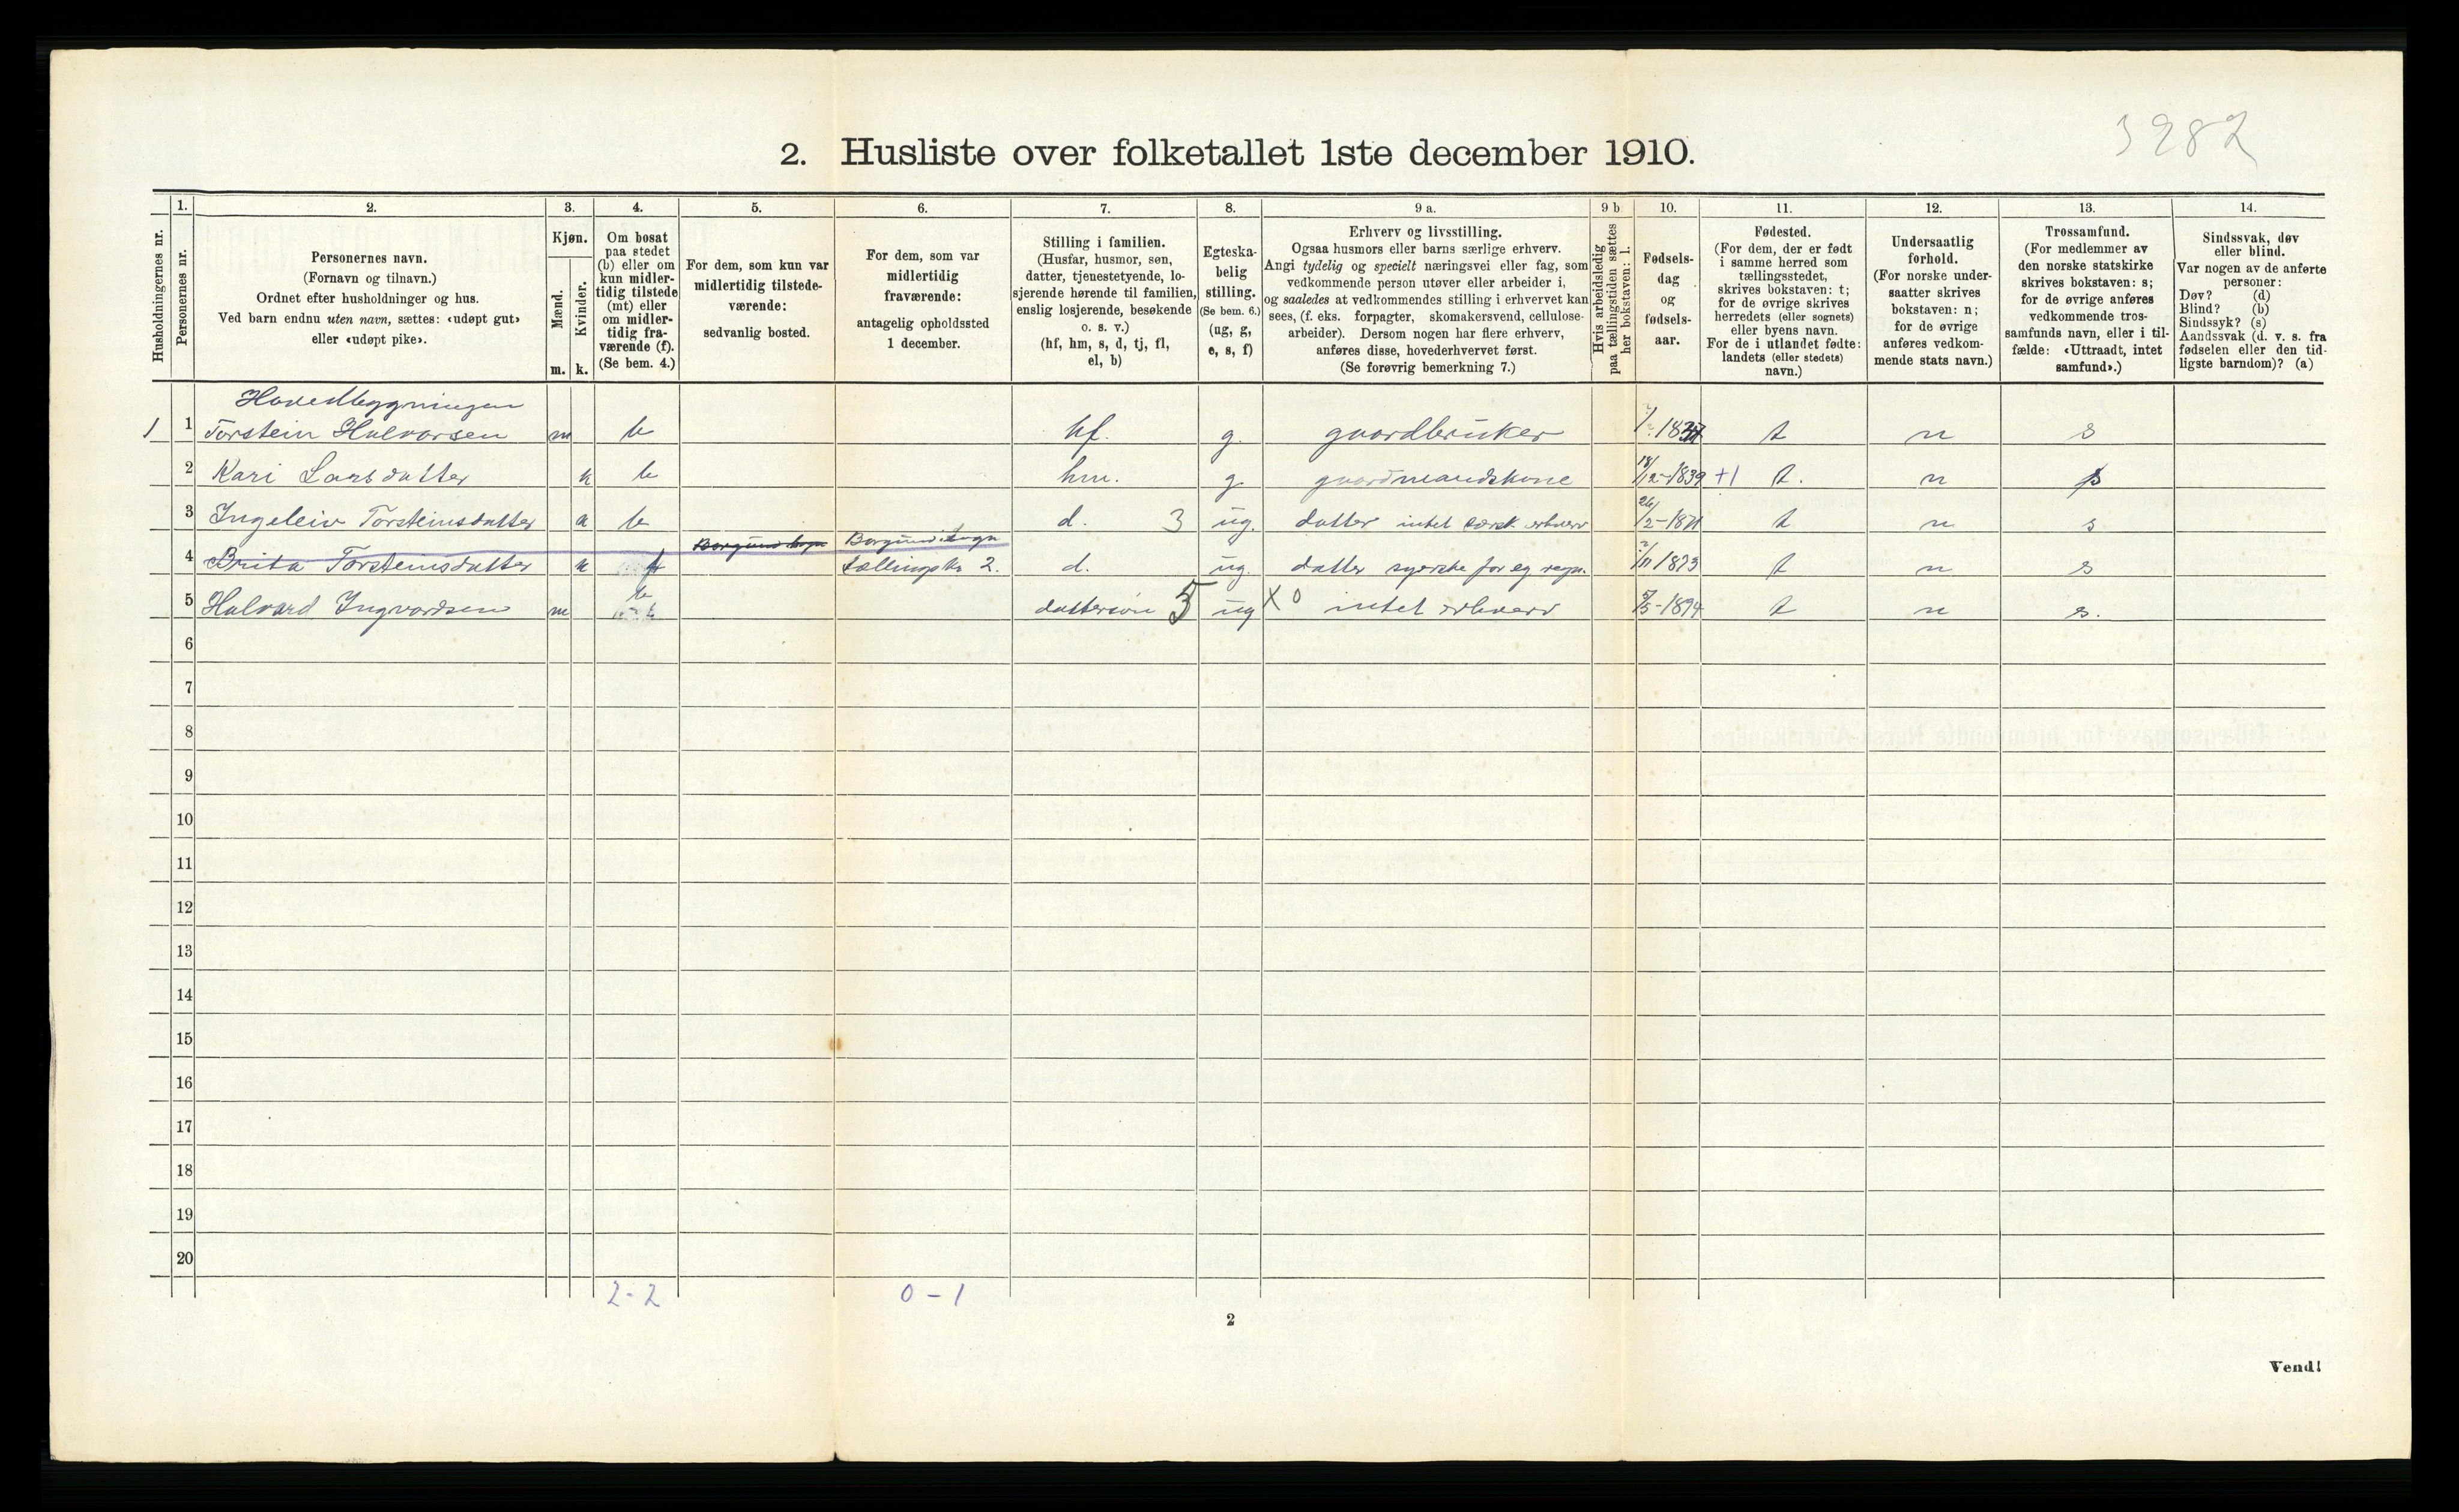 3282
2. Husliste over folketallet 1ste december 1910.
Husholdningernes nr.
1.
Personernes nr.
2.
Personernes navn.
(Fornavn og tilnavn.)
Ordnet efter husholdninger og hus.
Ved barn endnu uten navn, sættes: «udøpt gut»
eller «udøpt pike».
3.
Kjøn.
Mænd.
Kvinder.
m. k.
4.
Om bosat
paa stedet
(b) eller om
kun midler-
tidig tilstede
(mt) eller
om midler-
tidig fra-
værende (f).
(Se bem. 4.)
5.
For dem, som kun var
midlertidig tilstede-
værende:
sedvanlig bosted.
6.
For dem, som var
midlertidig
fraværende:
antagelig opholdssted
1 december.
7.
Stilling i familien.
(Husfar, husmor, søn,
datter, tjenestetyende, lo-
sjerende hørende til familien,
enslig losjerende, besøkende
o. s. v.)
(hf, hm, s, d, tj, fl,
el, b)
8.
Egteska-
belig
stilling.
(Se bem. 6.)
(ug, g,
e, s, f)
9 a.
Erhverv og livsstilling.
Ogsaa husmors eller barns særlige erhverv.
Angi tydelig og specielt næringsvei eller fag, som
vedkommende person utøver eller arbeider i,
og saaledes at vedkommendes stilling i erhvervet kan
sees, (f. eks. forpagter, skomakersvend, cellulose-
arbeider). Dersom nogen har flere erhverv,
anføres disse, hovederhvervet først.
(Se forøvrig bemerkning 7.)
9 b
Hvis arbeidsledig
paa tællingstiden sættes
her bokstaven: l.
10.
Fødsels-
dag
og
fødsels-
aar.
11.
Fødested.
(For dem, der er født
i samme herred som
tællingsstedet,
skrives bokstaven: t;
for de øvrige skrives
herredets (eller sognets)
eller byens navn.
For de i utlandet fødte:
landets (eller stedets)
navn.)
12.
Undersaatlig
forhold.
(For norske under-
saatter skrives
bokstaven: n;
for de øvrige
anføres vedkom-
mende stats navn.)
13.
Trossamfund.
(For medlemmer av
den norske statskirke
skrives bokstaven: s;
for de øvrige anføres
vedkommende tros-
samfunds navn, eller i til-
fælde: «Uttraadt, intet
samfund».)
14.
Sindssvak, døv
eller blind.
Var nogen av de anførte
personer:
Døv? (d)
Blind? (b)
Sindssyk? (s)
Aandssvak (d. v. s. fra
fødselen eller den tid-
ligste barndom)? (a)
Hovedbygningen
1 1 Torstein Halvorsen m b hf. g. gaardbruker t n s
2 Kari Larsdatter k b hm. g gaardmandskone 18/12-1839 +1 t. n s
3 Ingeleiv Torsteinsdatter k b d. 3 ug. datter intet særsk. erhverv 26/2-1871 t n s
Borgund sogn Borgund sogn
4 Brita Torsteinsdatter k f tællingskr 2. d. ug. datter syerske for eg regn. 1873 t n s
5 Halvard Ingvardsen m b dattersøn 5 ug X 0 intet erhverv 5/5-1894 t n s.
6
7
8
9
10
11
12
13
14
15
16
17
18
19
20
2-2 0-1
2
Vend!